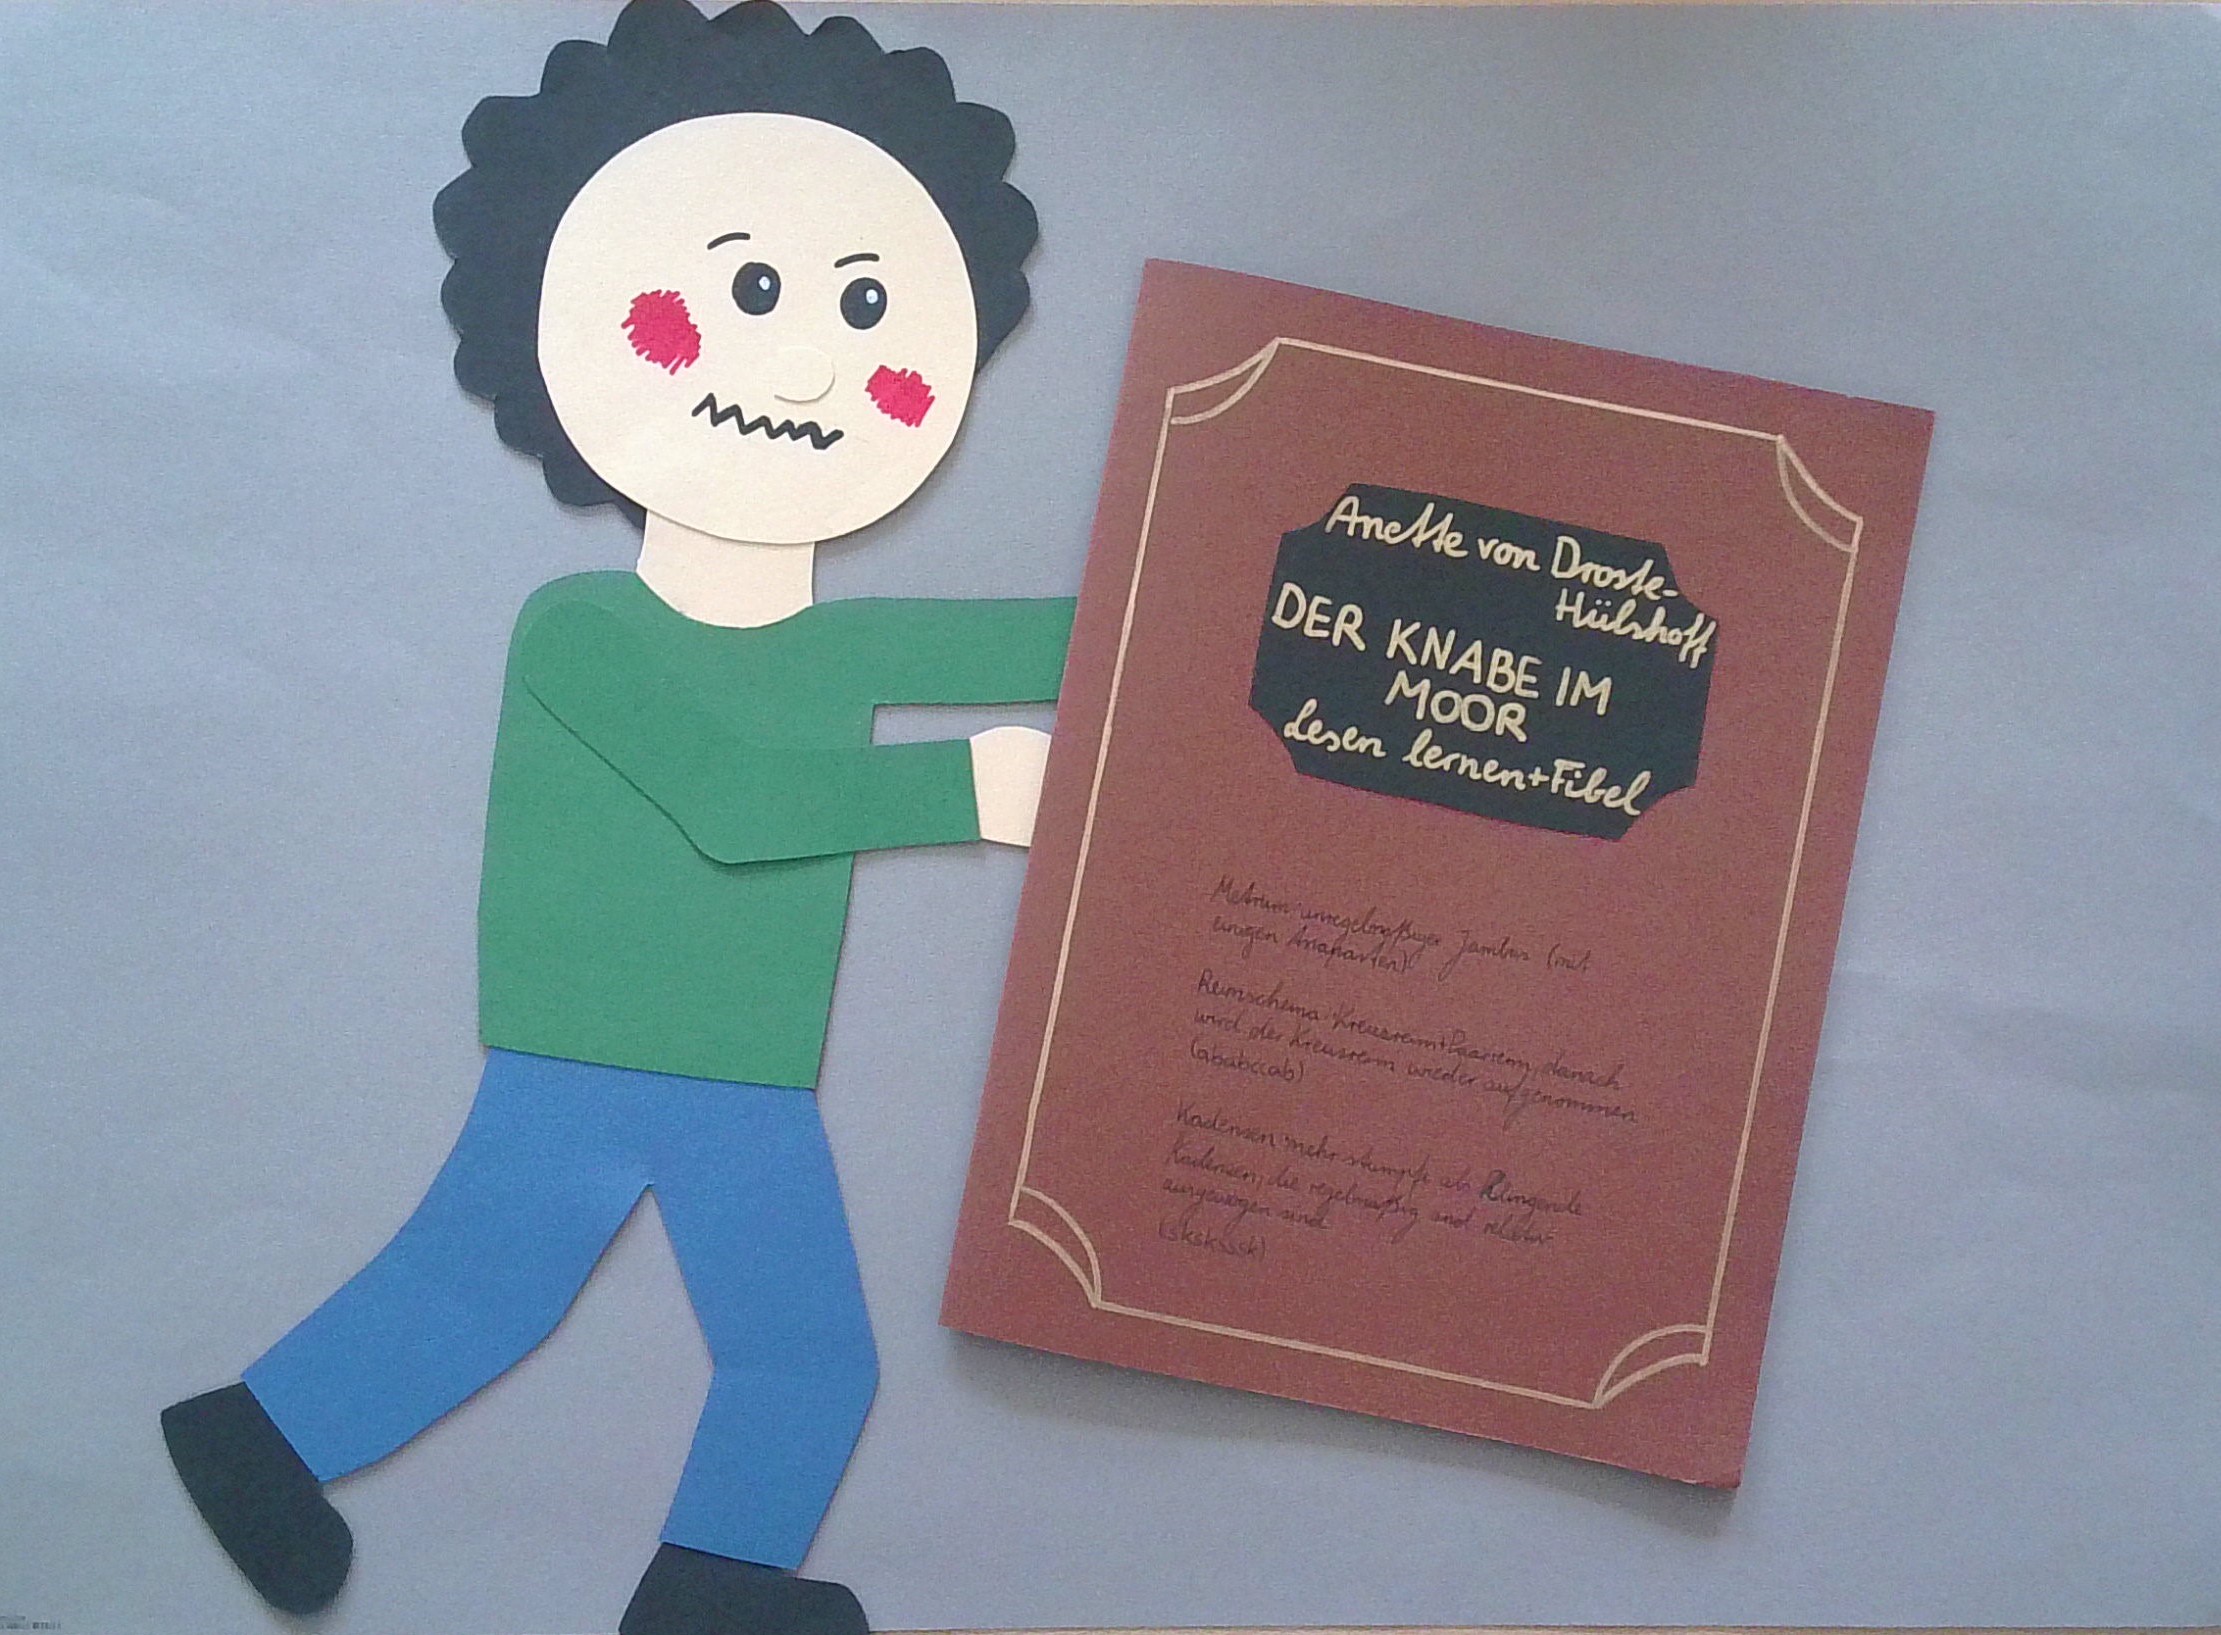 Anette von Droste-
Hülshoff
DER KNABE IM
MOOR
Lesen lernen+Fibel
Metrum: unregelmäßiger Jambus (mit
einigen Anapästen)
Reimschema: Kreuzreim+Paarreim, danach
wird der Kreuzreim wieder aufgenommen
(ababccab)
Kadenzen: mehr stumpfe als klingende
Kadenzen, die regelmäßig und relativ
ausgewogen sind
(sksksssk)